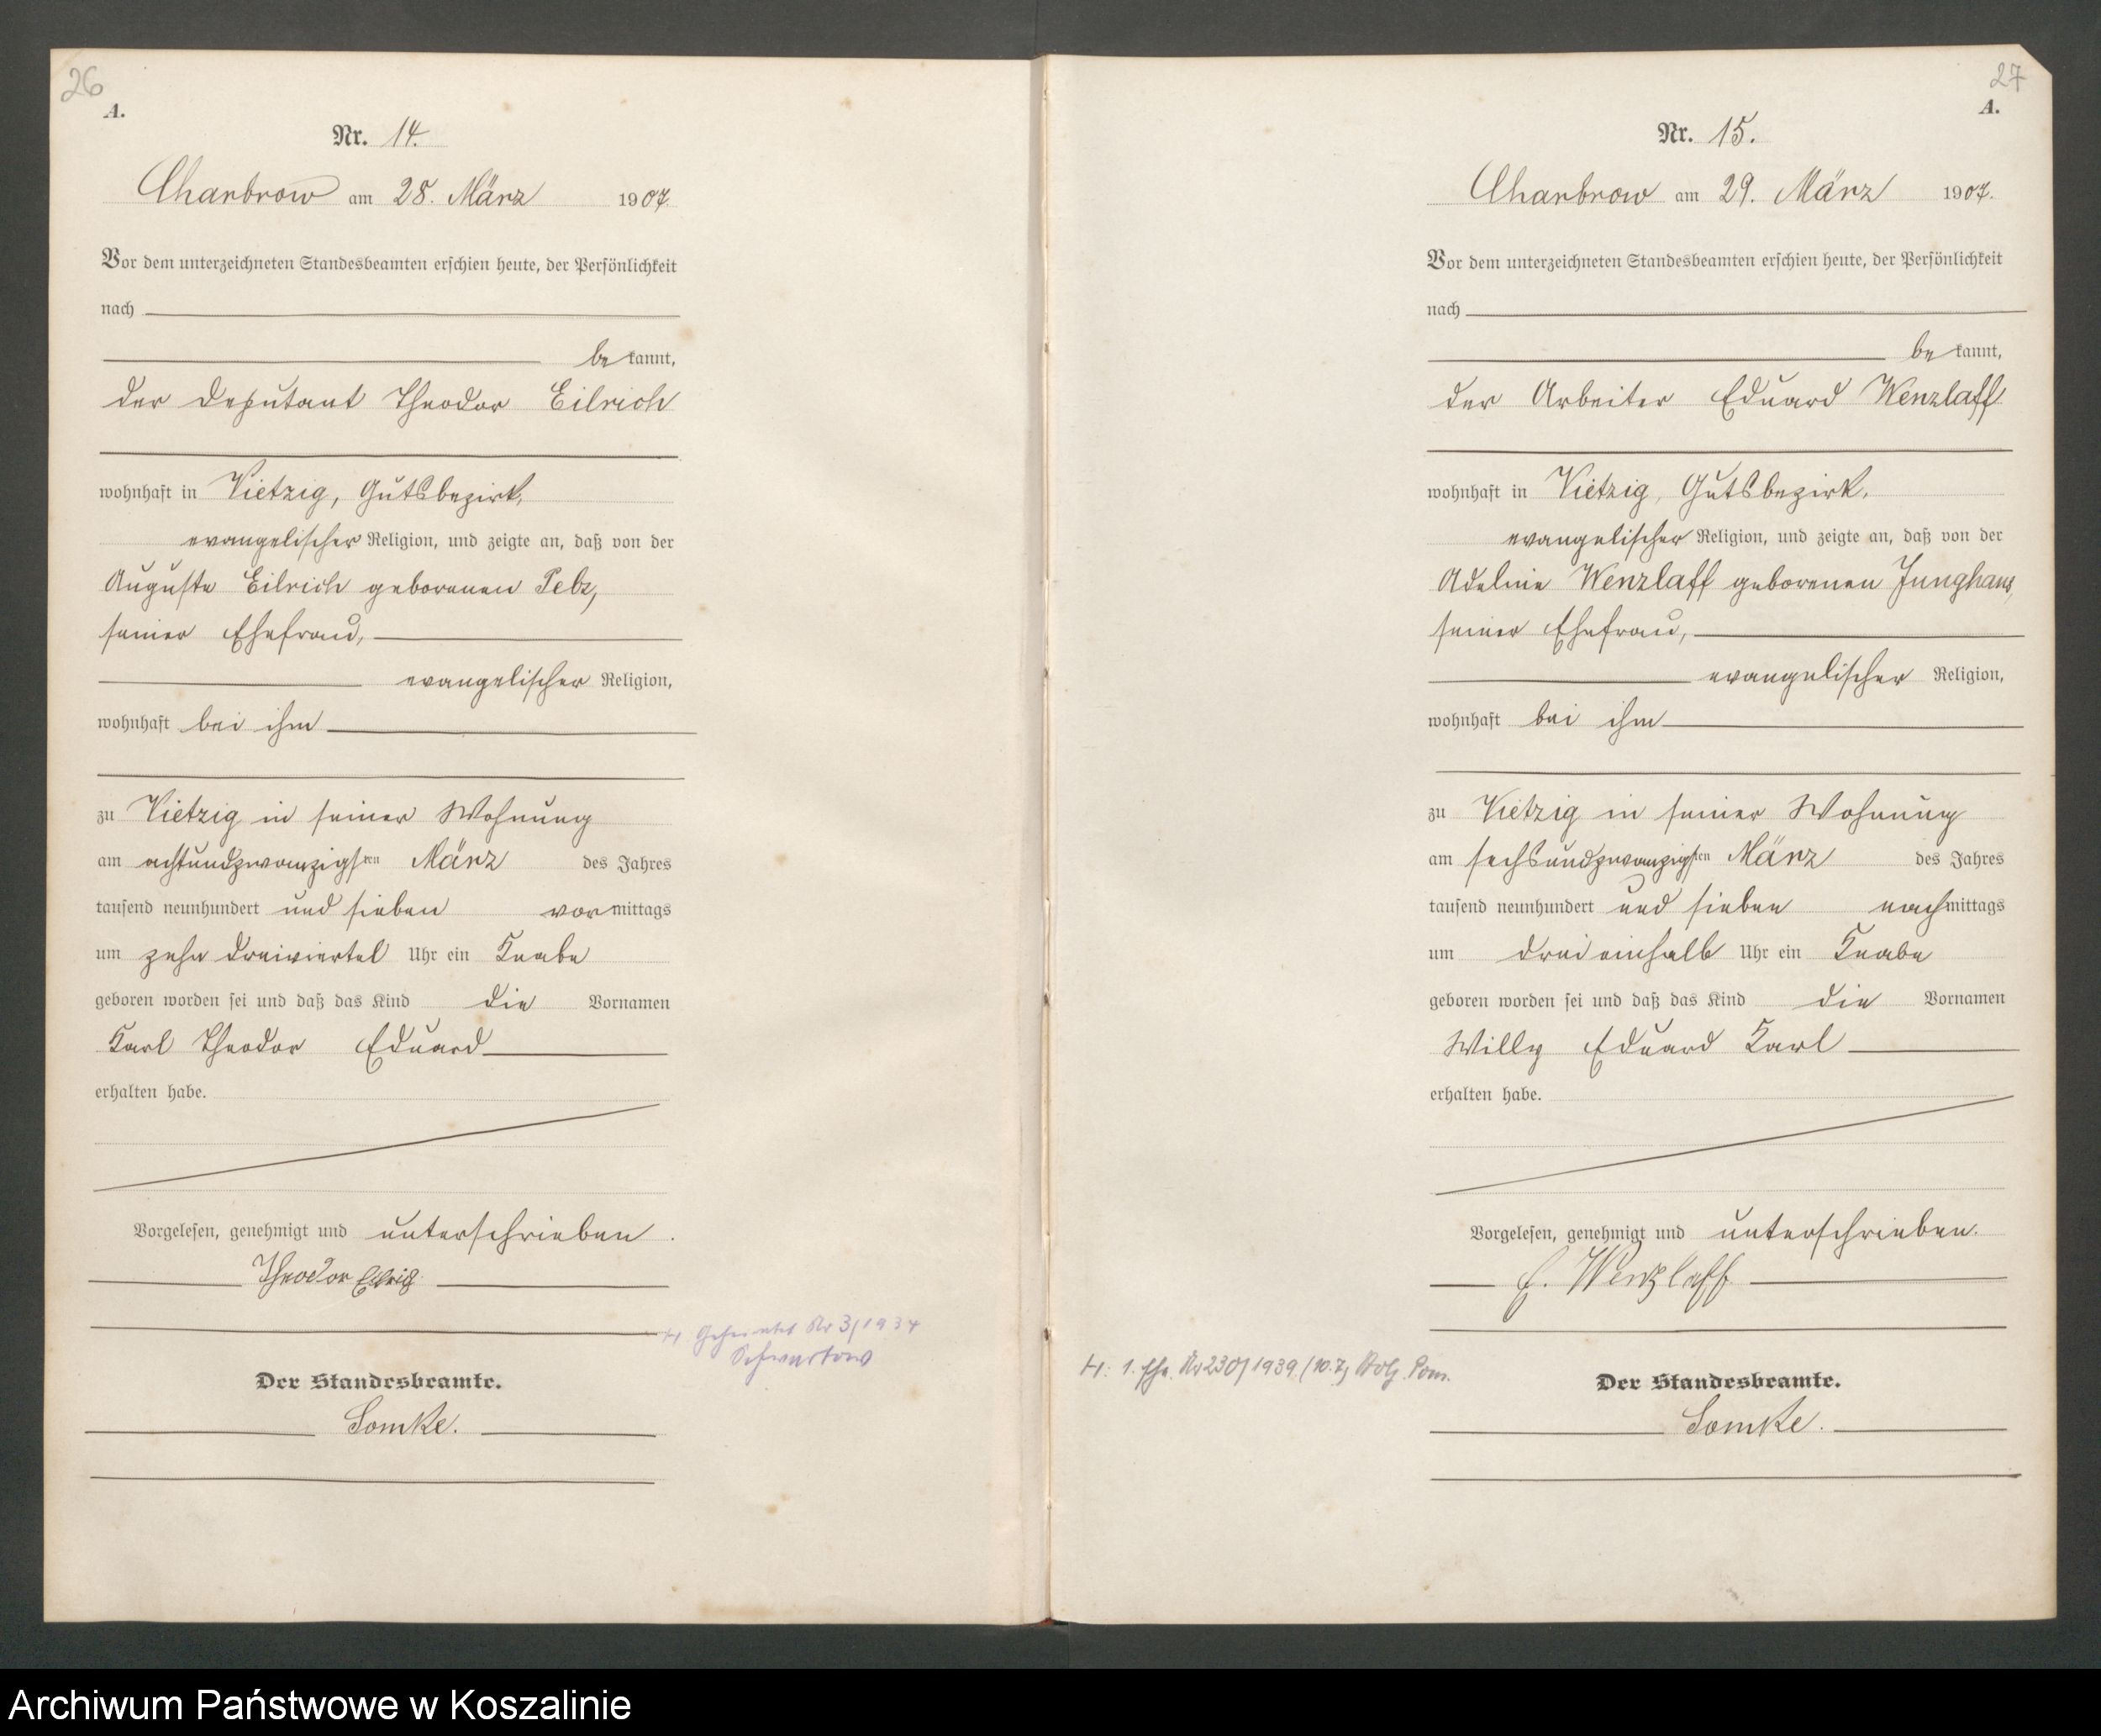 26
A.
Nr. 14.
Charbrow am 28. März 1907.
Vor dem unterzeichneten Standesbeamten erschien heute, der Persönlichkeit
nach
be kannt,
der Deputant Theodor Eilrich
wohnhaft in Vietzig, Gutsbezirk,
evangelischer Religion, und zeigte an, daß von der
Auguste Eilrich geborenen Pelz,
seiner Ehefrau,
evangelischer Religion,
wohnhaft bei ihm
zu Vietzig in seiner Wohnung
am achtundzwanzigsten März des Jahres
tausend neunhundert und sieben vormittags
um zehn dreiviertel Uhr ein Knabe
geboren worden sei und daß das Kind die Vornamen
Karl Theodor Eduard
erhalten habe.
Vorgelesen, genehmigt und unterschrieben.
Theodor Eilrig
H Geheiratet Nr 3/1934
Schwartow
Der Standesbeamte.
Lomke.
27
A.
Nr. 15.
Charbrow am 29. März 1907.
Vor dem unterzeichneten Standesbeamten erschien heute, der Persönlichkeit
nach
be kannt,
der Arbeiter Eduard Wenzlaff
wohnhaft in Vietzig, Gutsbezirk,
evangelischer Religion, und zeigte an, daß von der
Adeline Wenzlaff geborenen Junghans,
seiner Ehefrau,
evangelischer Religion,
wohnhaft bei ihm
zu Vietzig in seiner Wohnung
am sechsundzwanzigsten März des Jahres
tausend neunhundert und sieben nachmittags
um drei einhalb Uhr ein Knabe
geboren worden sei und daß das Kind die Vornamen
Willy Eduard Karl
erhalten habe.
Vorgelesen, genehmigt und unterschrieben.
E. Wenzlaff
H: 1. Ehe. Nr 230/1939. (10.7) Stolp Pom.
Der Standesbeamte.
Lomke.
Archiwum Państwowe w Koszalinie